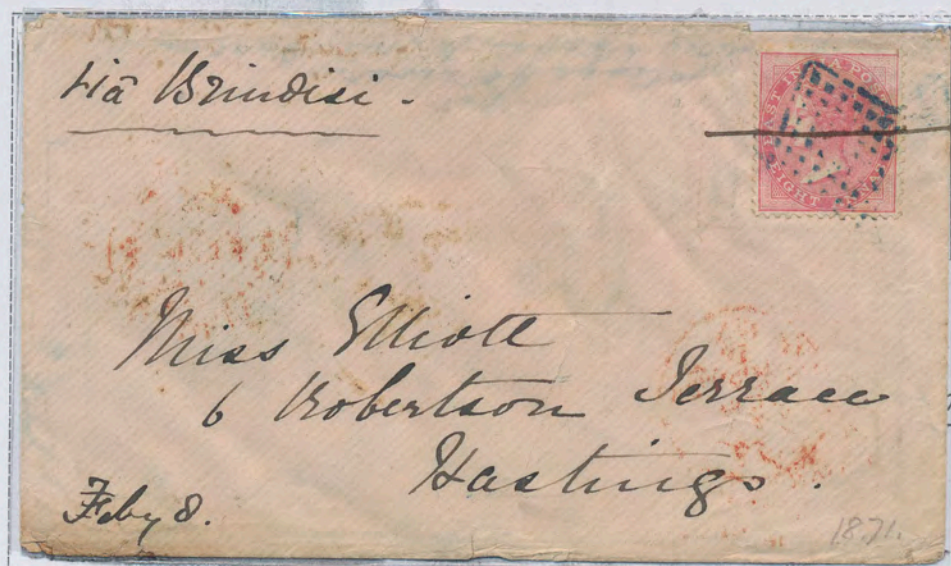 via Brindisi -
EAST INDIA POS
EIGHT ANNA
Miss Elliott
6 Robertson Terrace
Hastings.
Feby 8.
1871.